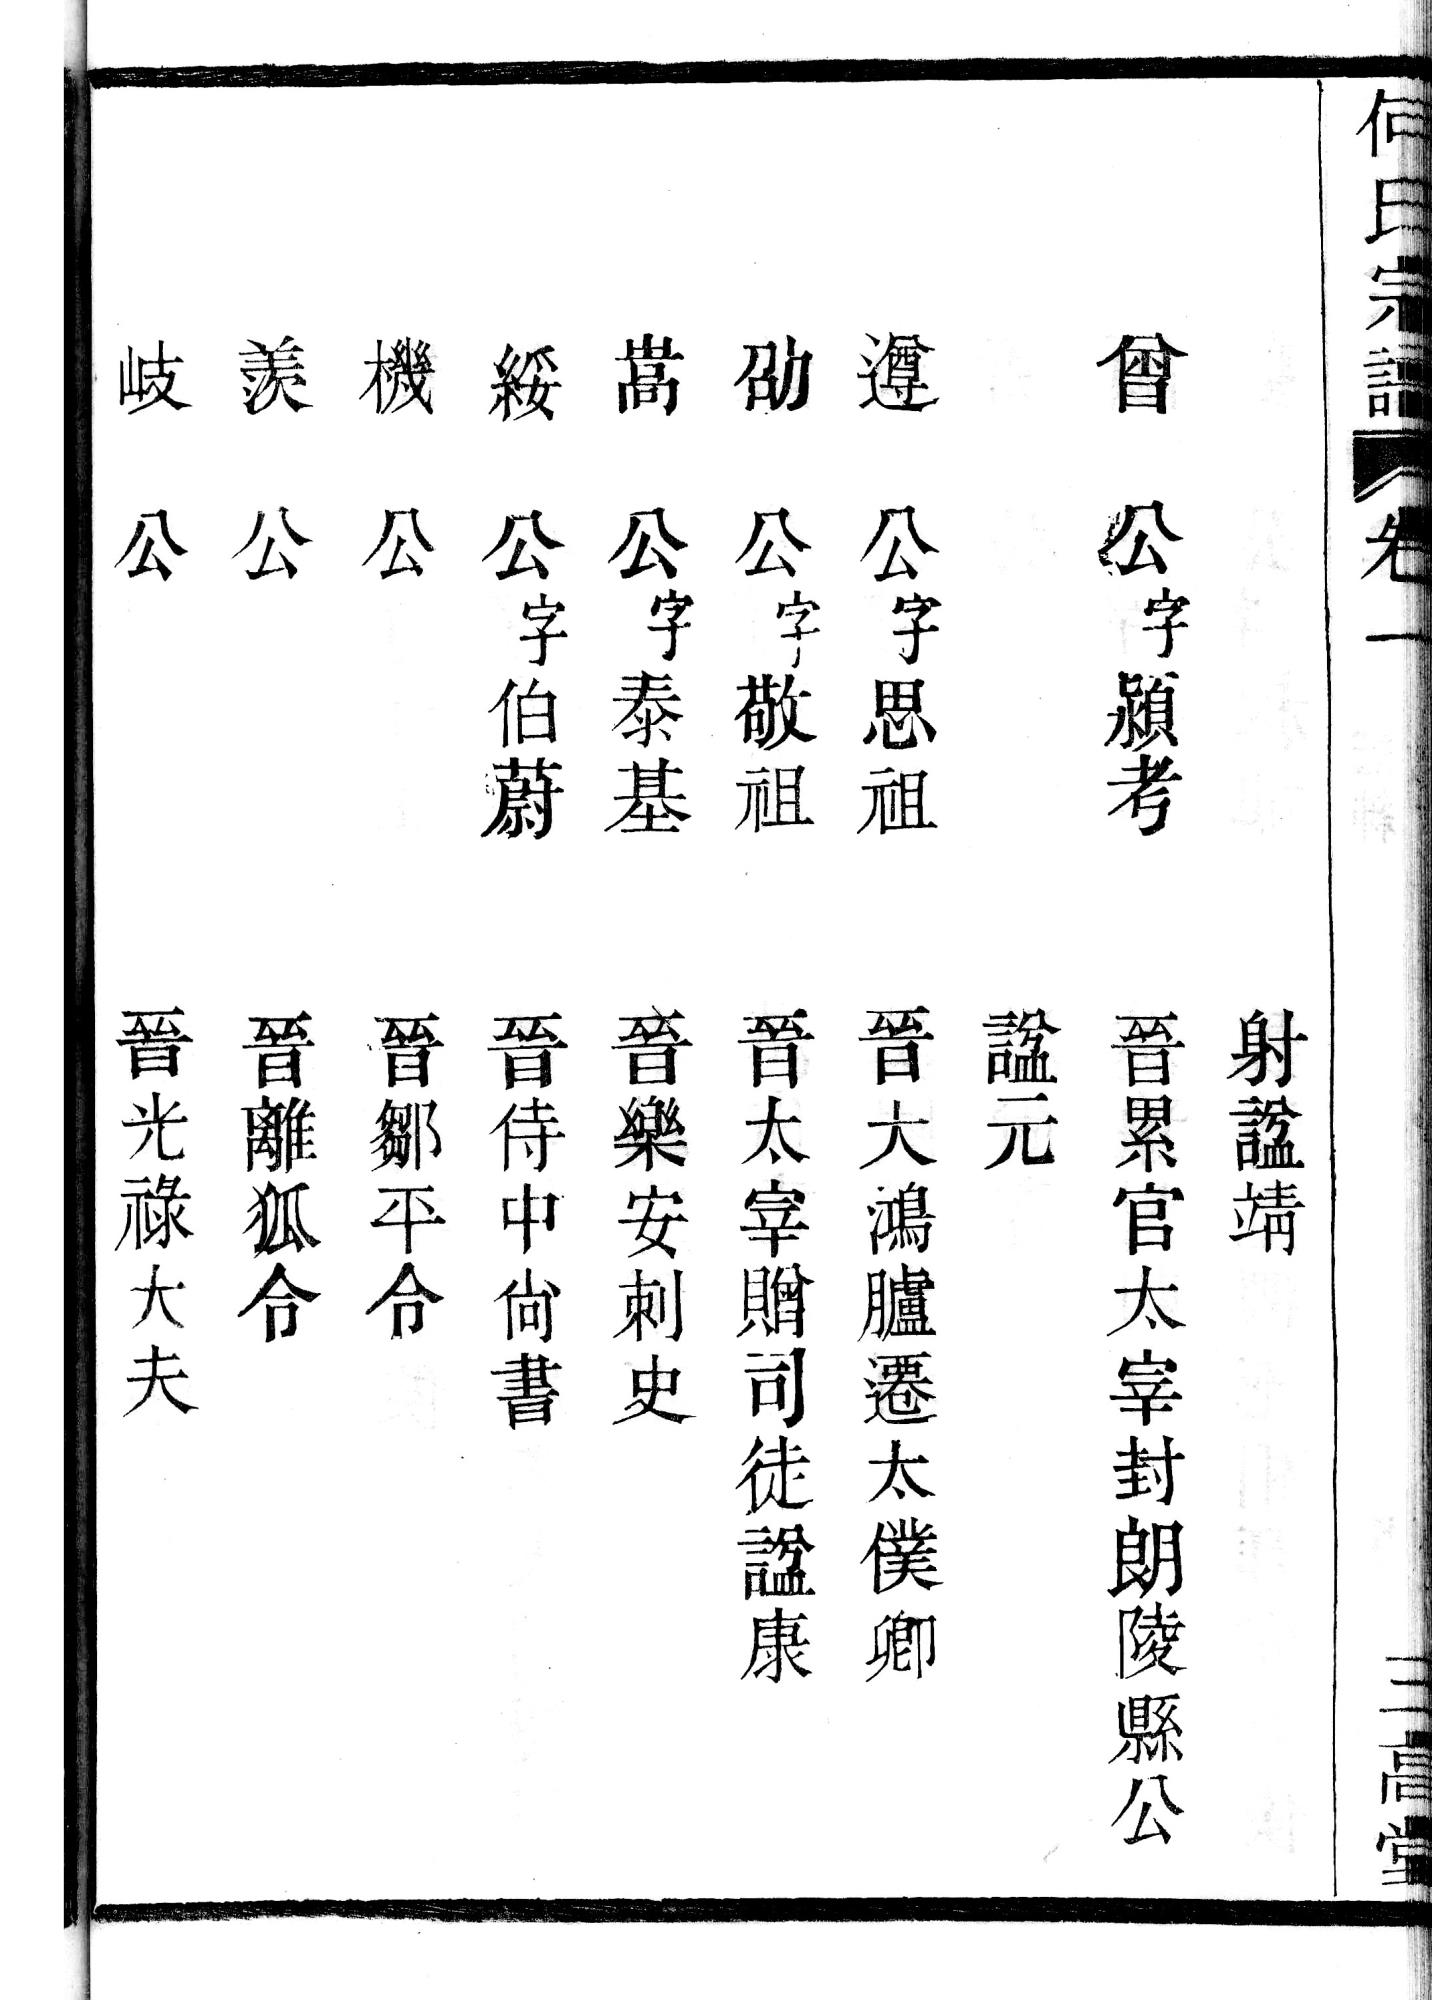 何氏宗譜
卷一
三高堂
射諡靖
曾公字潁考 晉累官太宰封朗陵縣公
諡元
遵公字思祖 晉大鴻臚遷太僕卿
劭公字敬祖 晉太宰贈司徒諡康
嵩公字泰基 晉樂安刺史
綏公字伯蔚 晉侍中尚書
機公 晉鄒平令
羨公 晉離狐令
岐公 晉光祿大夫